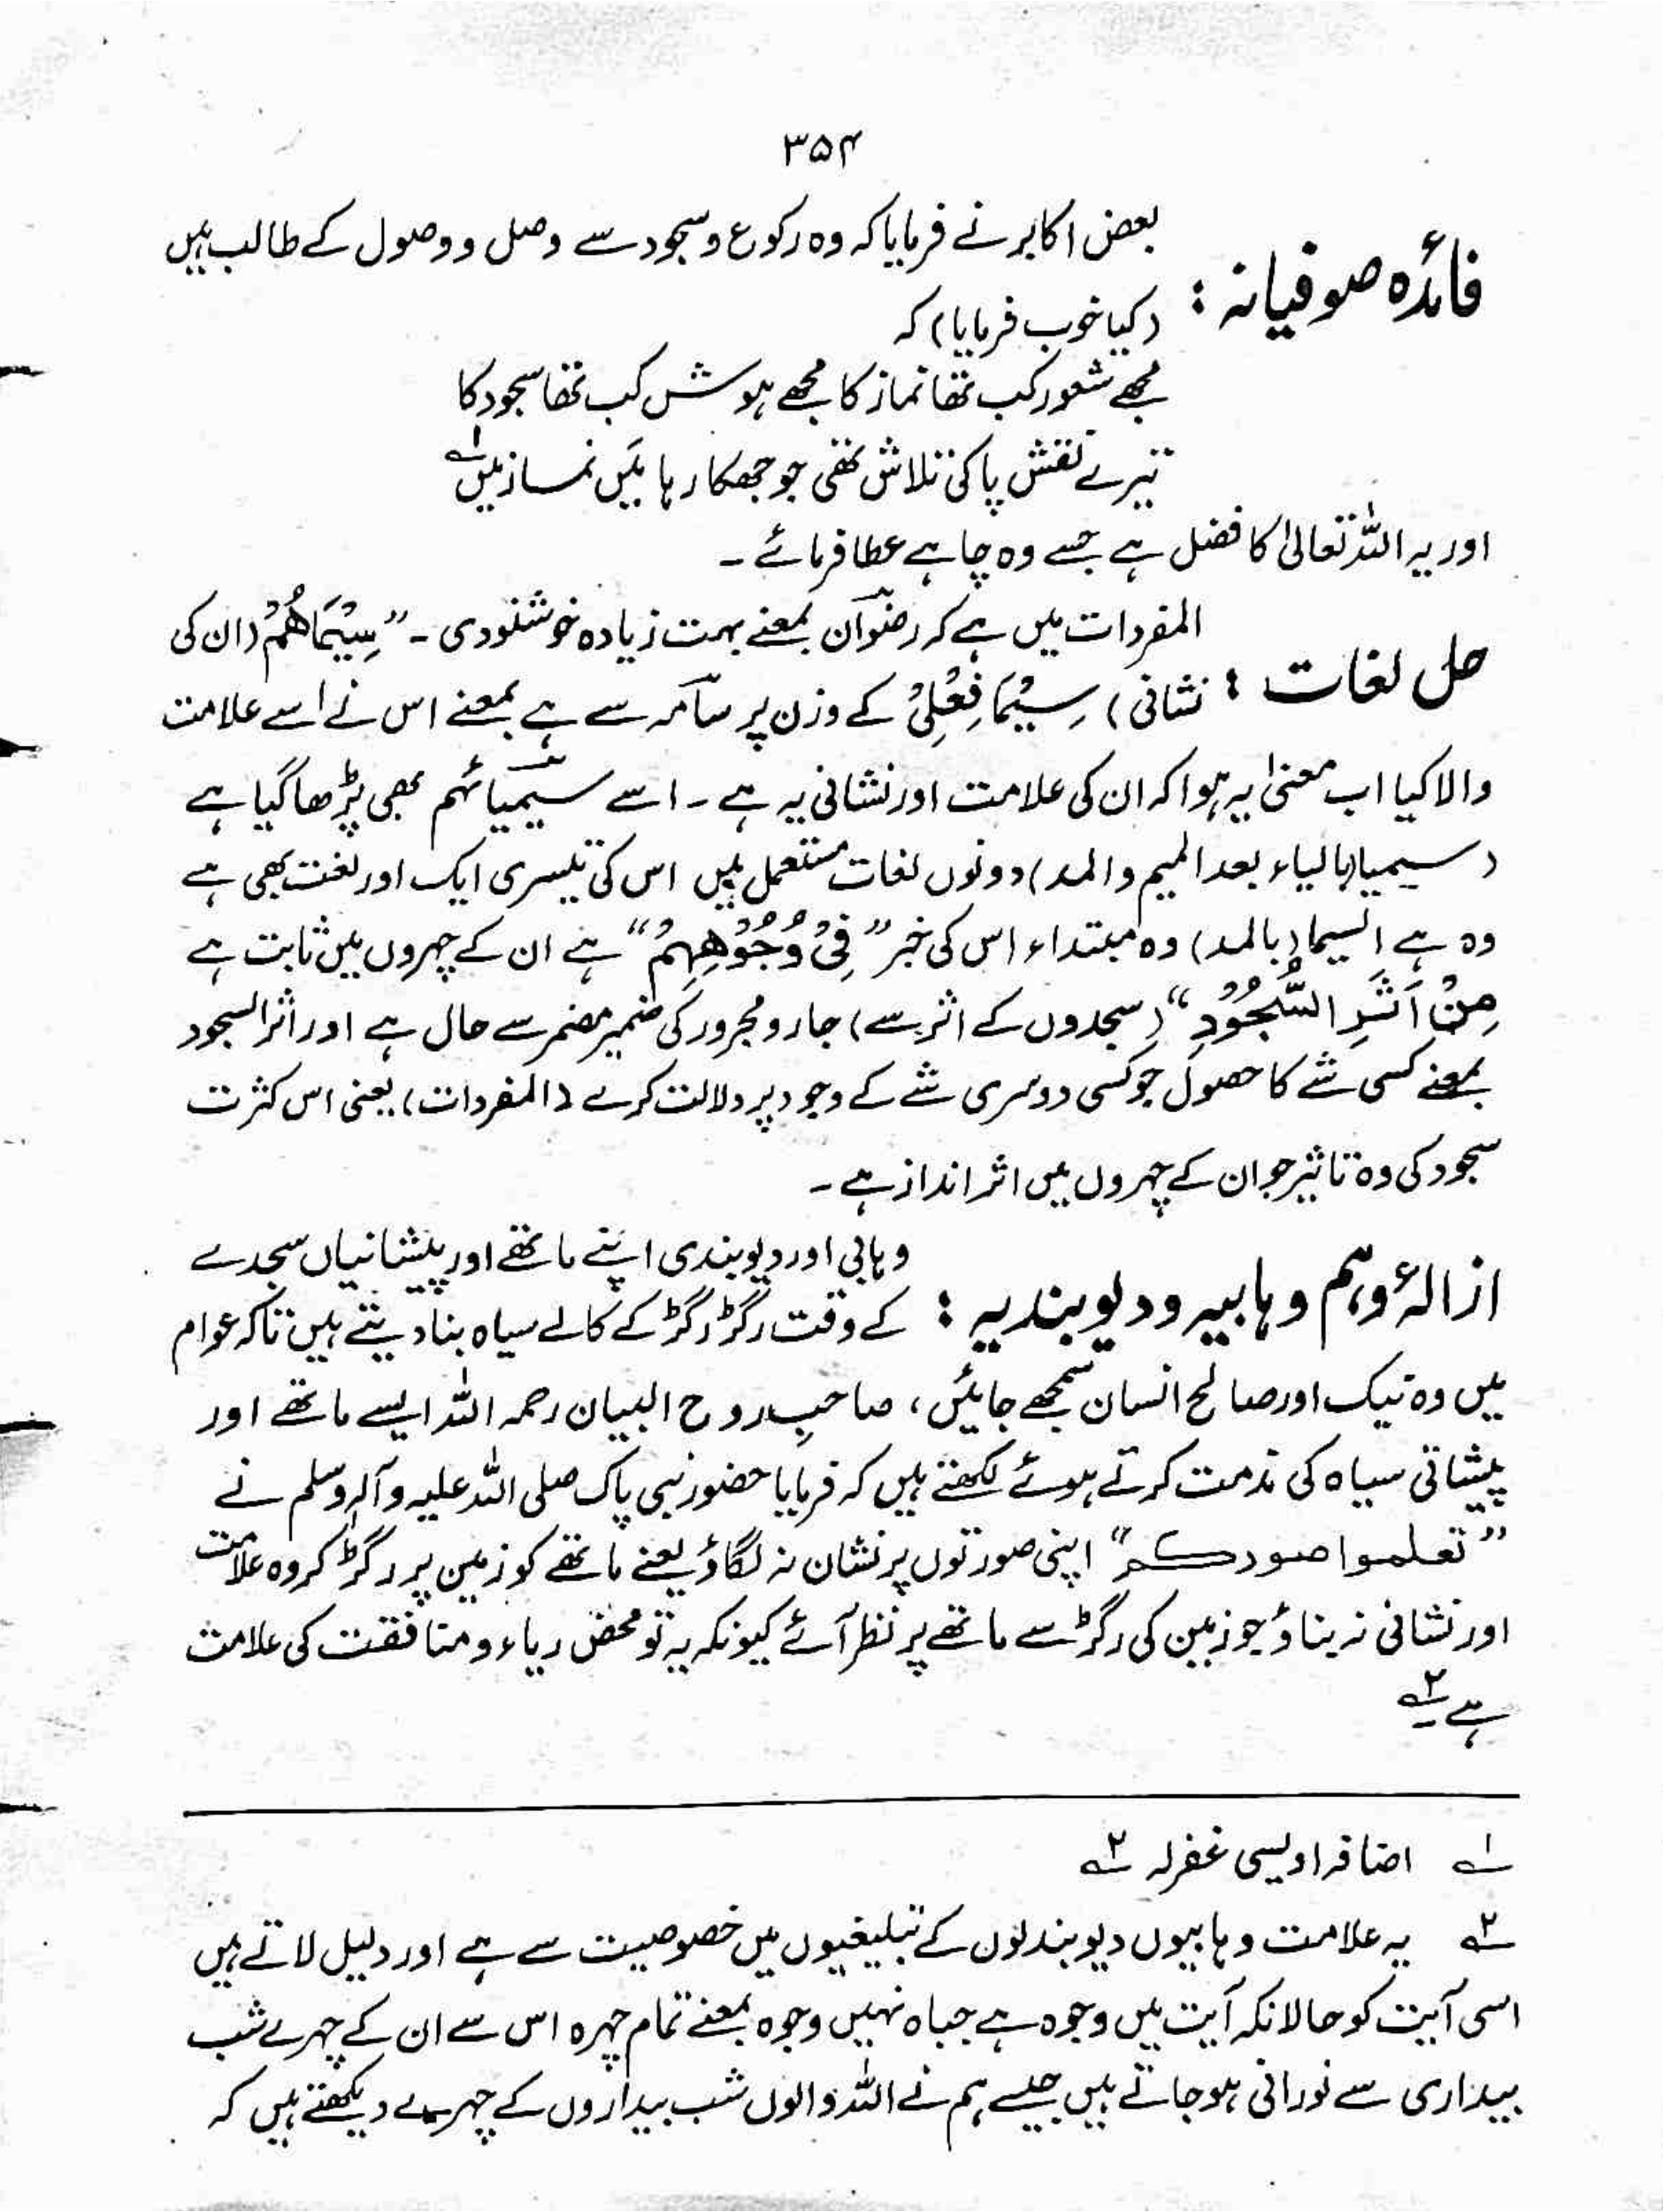 ۳۵۴
فائدہ صوفیانہ : بعض اکابر نے فرمایا کہ وہ رکوع و سجود سے وصل و وصول کے طالب ہیں
(کیا خوب فرمایا) کہ
مجھے شعور کب تھا نماز کا مجھے ہوش کب تھا سجود کا
تیرے نقش پا کی تلاش تھی جو جھکا رہا میَں نماز میں ۱؎
اور یہ اللہ تعالیٰ کا فضل ہے جسے وہ چاہے عطا فرمائے ۔
حل لغات : المفردات میں ہے کہ رضوان بمعنے بہت زیادہ خوشنودی ۔ ”سِیْمَاهُمْ (ان کی
نشانی) سِیْمَا فِعْلِیْ کے وزن پر سامَہ سے ہے بمعنے اس نے اسے علامت
والا کیا اب معنیٰ یہ ہوا کہ ان کی علامت اور نشانی یہ ہے ۔ اسے سیمیائہم بھی پڑھا گیا ہے
(سیمیا بالیاء بعد المیم والمد) دونوں لغات مستعمل ہیں اس کی تیسری ایک اور لغت بھی ہے
وہ ہے السیما (بالمد) وہ مبتداء اس کی خبر ”فِیْ وُجُوْهِهِمْ“ ہے ان کے چہروں میں ثابت ہے
مِنْ اَثَرِ السُّجُوْدِ“ (سجدوں کے اثر سے) جار و مجرور کی ضمیر مضمر سے حال ہے اور اثر السجود
بمعنے کسی شے کا حصول جو کسی دوسری شے کے وجود پر دلالت کرے (المفردات) یعنی اس کثرت
سجود کی وہ تاثیر جو ان کے چہروں میں اثر انداز ہے ۔
ازالۂ وہم وہابیہ و دیوبندیہ : وہابی اور دیوبندی اپنے ماتھے اور پیشانیاں سجدے
کے وقت رگڑ رگڑ کے کالے سیاہ بنا دیتے ہیں تاکہ عوام
میں وہ نیک اور صالح انسان سمجھے جائیں، صاحبِ روح البیان رحمہ اللہ ایسے ماتھے اور
پیشانی سیاہ کی مذمت کرتے ہوئے لکھتے ہیں کہ فرمایا حضور نبی پاک صلی اللہ علیہ وآلہ وسلم نے
”تعلموا صورکم“ اپنی صورتوں پر نشان نہ لگاؤ یعنے ماتھے کو زمین پر رگڑ کر وہ علامت
اور نشانی نہ بناؤ جو زمین کی رگڑ سے ماتھے پر نظر آئے کیونکہ یہ تو محض ریاء و منافقت کی علامت
ہے ۲؎
۱؎ اضافہ اویسی غفرلہ ۲؎
۲؎ یہ علامت وہابیوں دیوبندلوں کے تبلیغیوں میں خصوصیت سے ہے اور دلیل لاتے ہیں
اسی آیت کو حالانکہ آیت میں وجوہ ہے جباہ نہیں وجوہ بمعنے تمام چہرہ اس سے ان کے چہرے شب
بیداری سے نورانی ہو جاتے ہیں جیسے ہم نے اللہ والوں شب بیداروں کے چہرے دیکھتے ہیں کہ